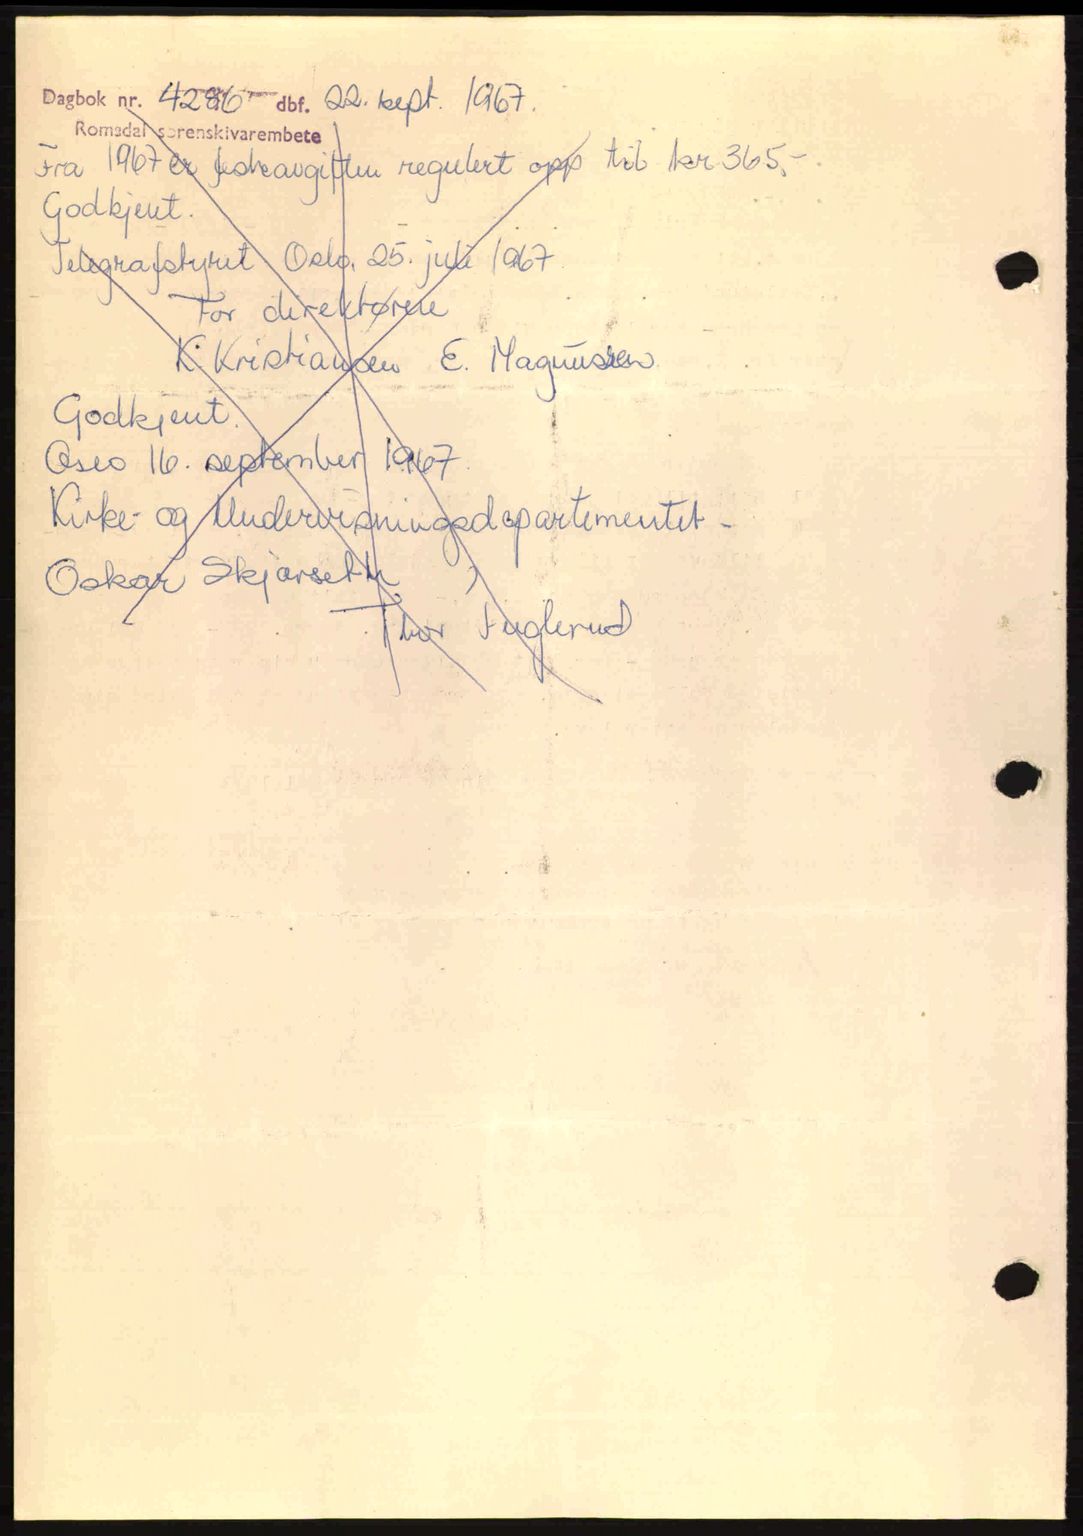 Dagbok nr. 4286 dbf. 22. sept. 1967.
Romsdal sorenskivarembete
Fra 1967 er festeavgiften regulert opp til kr 365,-.
Godkjent.
Telegrafstyret Oslo, 25. juli 1967
For direktøren
K. Kristiansen E. Magnussen
Godkjent.
Oslo 16. september 1967.
Kirke- og Undervisningsdepartementet -
Oskar Skjærseth
Thor Fuglerud